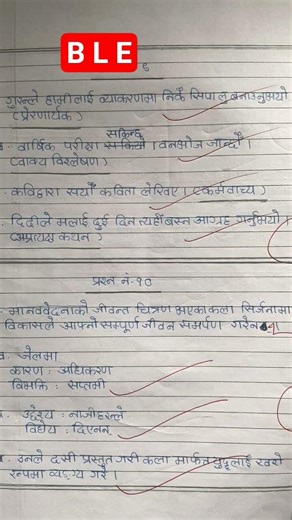 BLE
९
गुरुले हामीलाई व्याकरणमा निकै सिपालु बनाउनुभयो
(प्रेरणार्थक)
सकिन्छ
वार्षिक परीक्षा । वनभोज जान्छौँ ।
(वाक्य विश्लेषण)
कविद्वारा सयौँ कविता लेखिए । (कर्मवाच्य)
दिदीले मलाई दुई दिन त्यहीँ बस्न आग्रह गर्नुभयो ।
(अप्रत्यक्ष कथन)
प्रश्न नं-१०
मानववेदनाको जीवन्त चित्रण भएका कला सिर्जनामा
विकासले आफ्नो सम्पूर्ण जीवन समर्पण गरेनन्
ख. जेलमा
कारण : अधिकरण
विभक्ति : सप्तमी
ग. उद्देश्य : नाजीहरूले
विधेय : दिएनन्
उनले दसी प्रस्तुत गरी कला मार्फत युद्धलाई खरो
रूपमा व्यङ्ग्य गरे ।